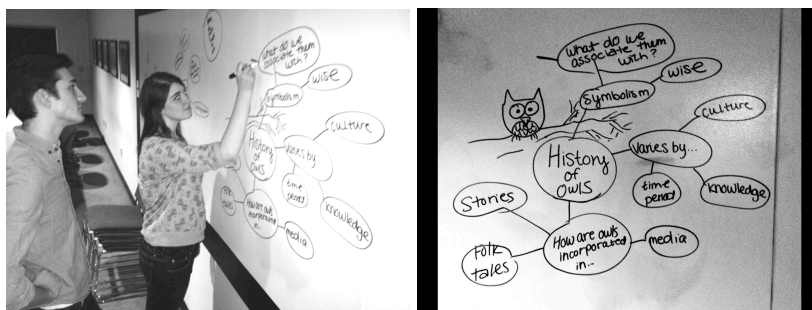 What do we
associate them
with?
wise
symbolism
culture
History
of
owls
Varies by...
time
period
knowledge
Folk
tales
How are owls
incorporated
in...
media
What do we
associate them
with?
wise
symbolism
culture
History
of
owls
Varies by...
time
period
knowledge
Stories
How are owls
incorporated
in...
media
Folk
tales